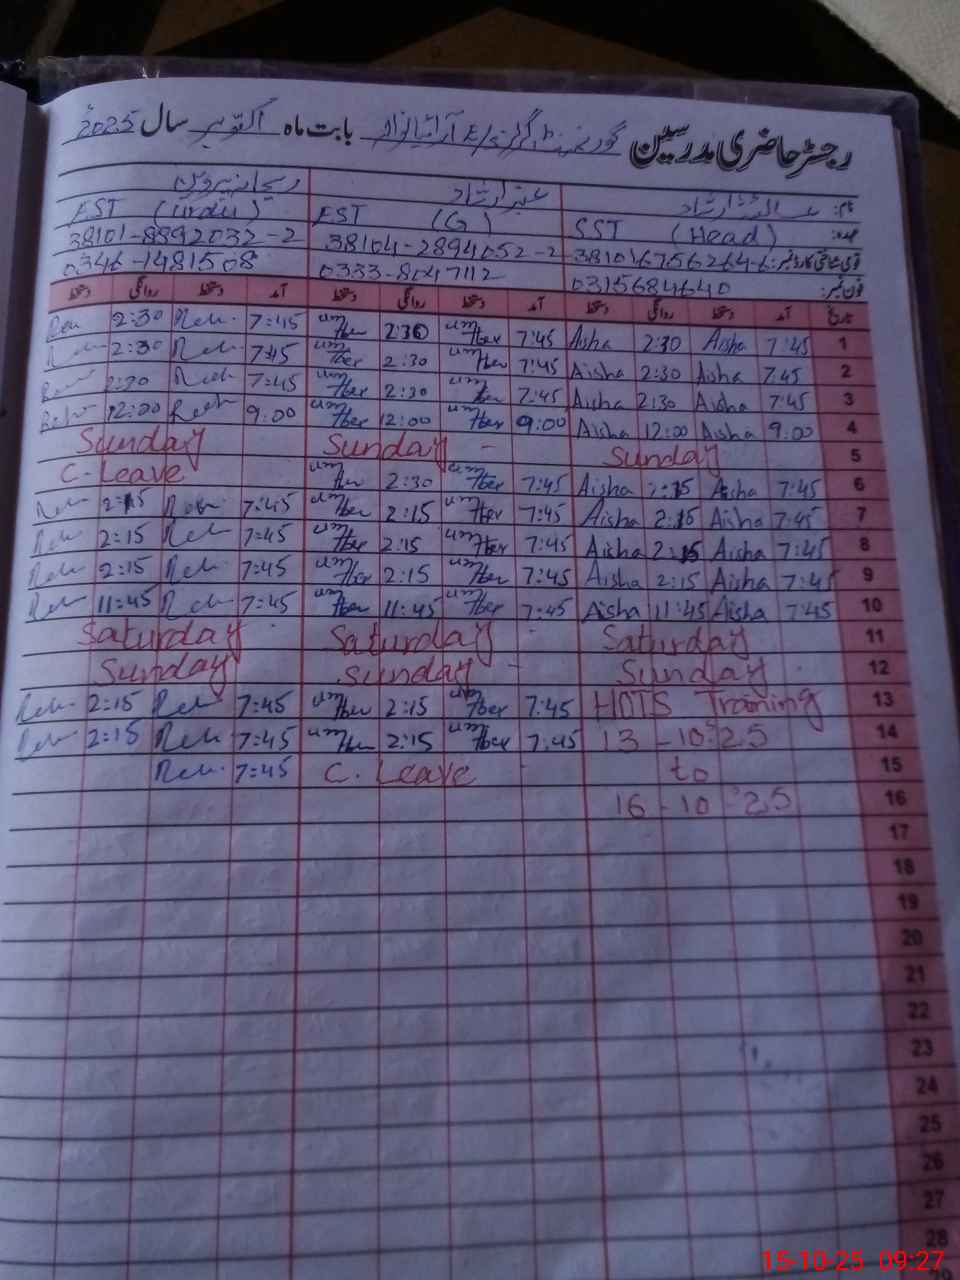 رجسٹر حاضری مدرسین گورنمنٹ گرلز بابت ماہ اکتوبر سال 2025ء
نام: عائشہ ارشاد عنبر ارشاد ریحانہ پروین
عہدہ: SST (Head) EST (G) EST (Urdu)
قومی شناختی کارڈ نمبر: 381016756264-6 38104-2894052-2 38101-8892032-2
فون نمبر: 0315684640 0333-8047112 0346-1481508
تاریخ آمد دستخط روانگی دستخط آمد دستخط روانگی دستخط آمد دستخط روانگی دستخط
1 7:45 Aisha 2:30 Aisha 7:45 umber 2:30 umber 7:45 Reh 2:30
2 7:45 Aisha 2:30 Aisha 7:45 umber 2:30 umber 7:45 Reh 2:30 Reh
3 7:45 Aisha 2:30 Aisha 7:45 umber 2:30 umber 7:45 Reh 2:30
4 9:00 Aisha 12:00 Aisha 9:00 umber 12:00 umber 9:00 Reh 12:00 Reh
5 Sunday Sunday Sunday
6 7:45 Aisha 2:15 Aisha 7:45 umber 2:30 umber C-Leave
7 7:45 Aisha 2:15 Aisha 7:45 umber 2:15 umber 7:45 Reh 2:15 Reh
8 7:45 Aisha 2:15 Aisha 7:45 umber 2:15 umber 7:45 Reh 2:15 Reh
9 7:45 Aisha 2:15 Aisha 7:45 umber 2:15 umber 7:45 Reh 2:15 Reh
10 7:45 Aisha 11:45 Aisha 7:45 umber 11:45 umber 7:45 Reh 11:45 Reh
11 Saturday Saturday Saturday
12 Sunday Sunday Sunday
13 HOTS Training 7:45 umber 2:15 umber 7:45 Reh 2:15 Reh
14 13-10-25 7:45 umber 2:15 umber 7:45 Reh 2:15 Reh
15 to C. Leave 7:45 Reh
16 16-10-25
17
18
19
20
21
22
23
24
25
26
27
28
15-10-25 09:27